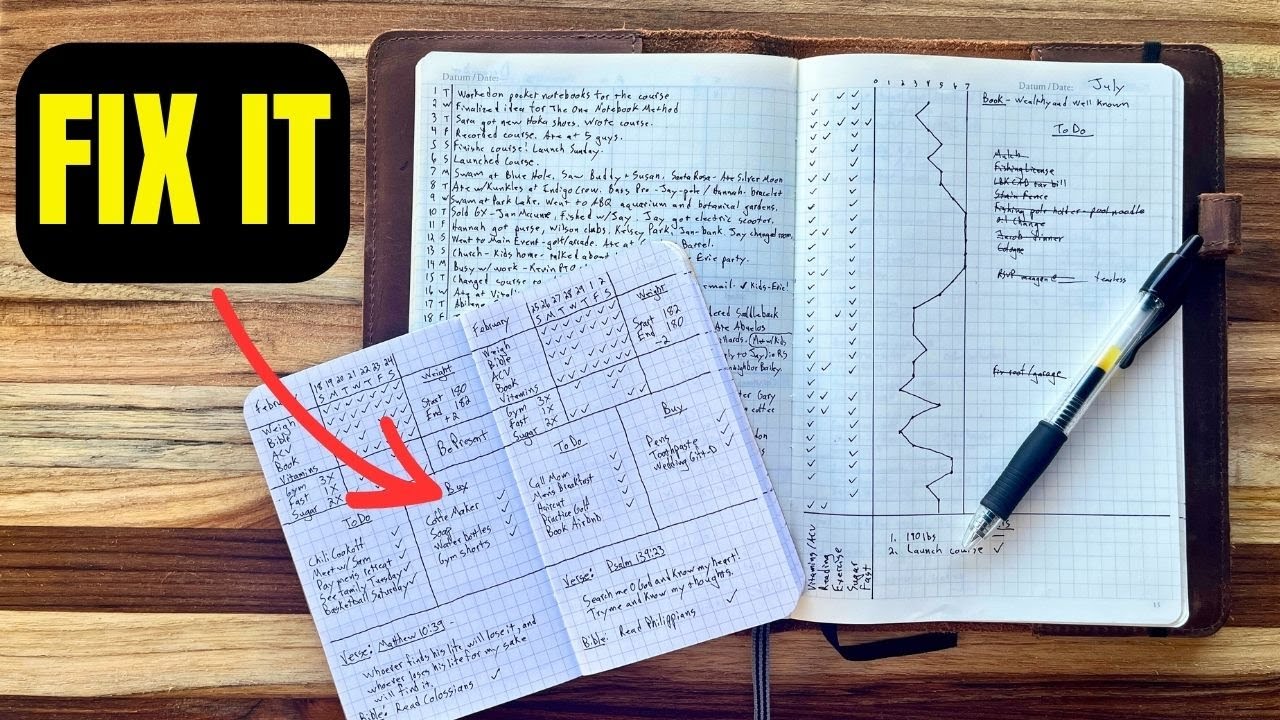 FIX IT
Datum / Date:
1 T Worked on pocket notebooks for the course
2 W Finalized idea for The One Notebook Method
3 T Sara got new Hoka shoes. Wrote course.
4 F Recorded course. Ate at 5 guys.
5 S Finished course! Launch Sunday.
6 S Launched Course.
7 M Swam at Blue Hole, Saw Buddy + Susan, Santa Rosa - Ate Silver Moon
8 T Ate w/Kunkles at Indigo Crow. Bass Pro - Jay-pole / Hannah-bracelet
9 W Swam at Park Lake. Went to ABQ aquarium and botanical gardens.
10 T Sold 6x - Jan McCune, fished w/Jay, Jay got electric scooter.
11 F Hannah got purse, Wilson clubs, Kelsey Park, Jan-bank. Jay changed room.
12 S Went to Main Event - golf/arcade. Ate at Barrel.
13 S Church - Kids home - talked about Evie party.
14 M Busy w/ work - Kevin
15 T Changed course
16 W
17 T Abilene
18 F
email - Kids - Evie!
Saddleback
Ate Abuelos
0 1 2 3 4 5 6 7
Datum / Date: July
Book - Wealthy and Well Known
To Do
Match
Fishing License
Stain Fence
Fishing pole holter - pool noodle
Oil Change
Jacob Dinner
Cologne
fearless
Fix roof/garage
1. 190 lbs
2. Launch course ✓
Vitamins ACV
Reading
Exercise
Sugar
Fast
15
February
18 19 20 21 22 23 24
S M T W T F S
Weigh
Bible
ACV
Book
Vitamins
Gym 3x
Fast 1x
Sugar 2x
Weight
Start 180
End 182
+2
Be Present
To Do
Chili Cookoff
Meet w/ Sam
Pay mens retreat
See family Tuesday
Basketball Saturday
Buy
Coffee Maker
Soap
Water bottles
Gym shorts
Verse: Matthew 10:39
whoever finds his life will lose it, and
whoever loses his life for my sake
will find it.
Bible: Read Colossians
February
25 26 27 28 29 1 2
S M T W T F S
Weigh
Bible
ACV
Book
Vitamins
Gym 3x
Fast 1x
Sugar 2x
Weight
Start 182
End 180
-2
To Do
Call Mom
Mens Breakfast
Haircut
Practice Golf
Book AirBnB
Buy
Pens
Toothpaste
Wedding Gift-D
Verse: Psalm 139:23
Search me O God and know my heart!
Try me and know my thoughts.
Bible: Read Philippians